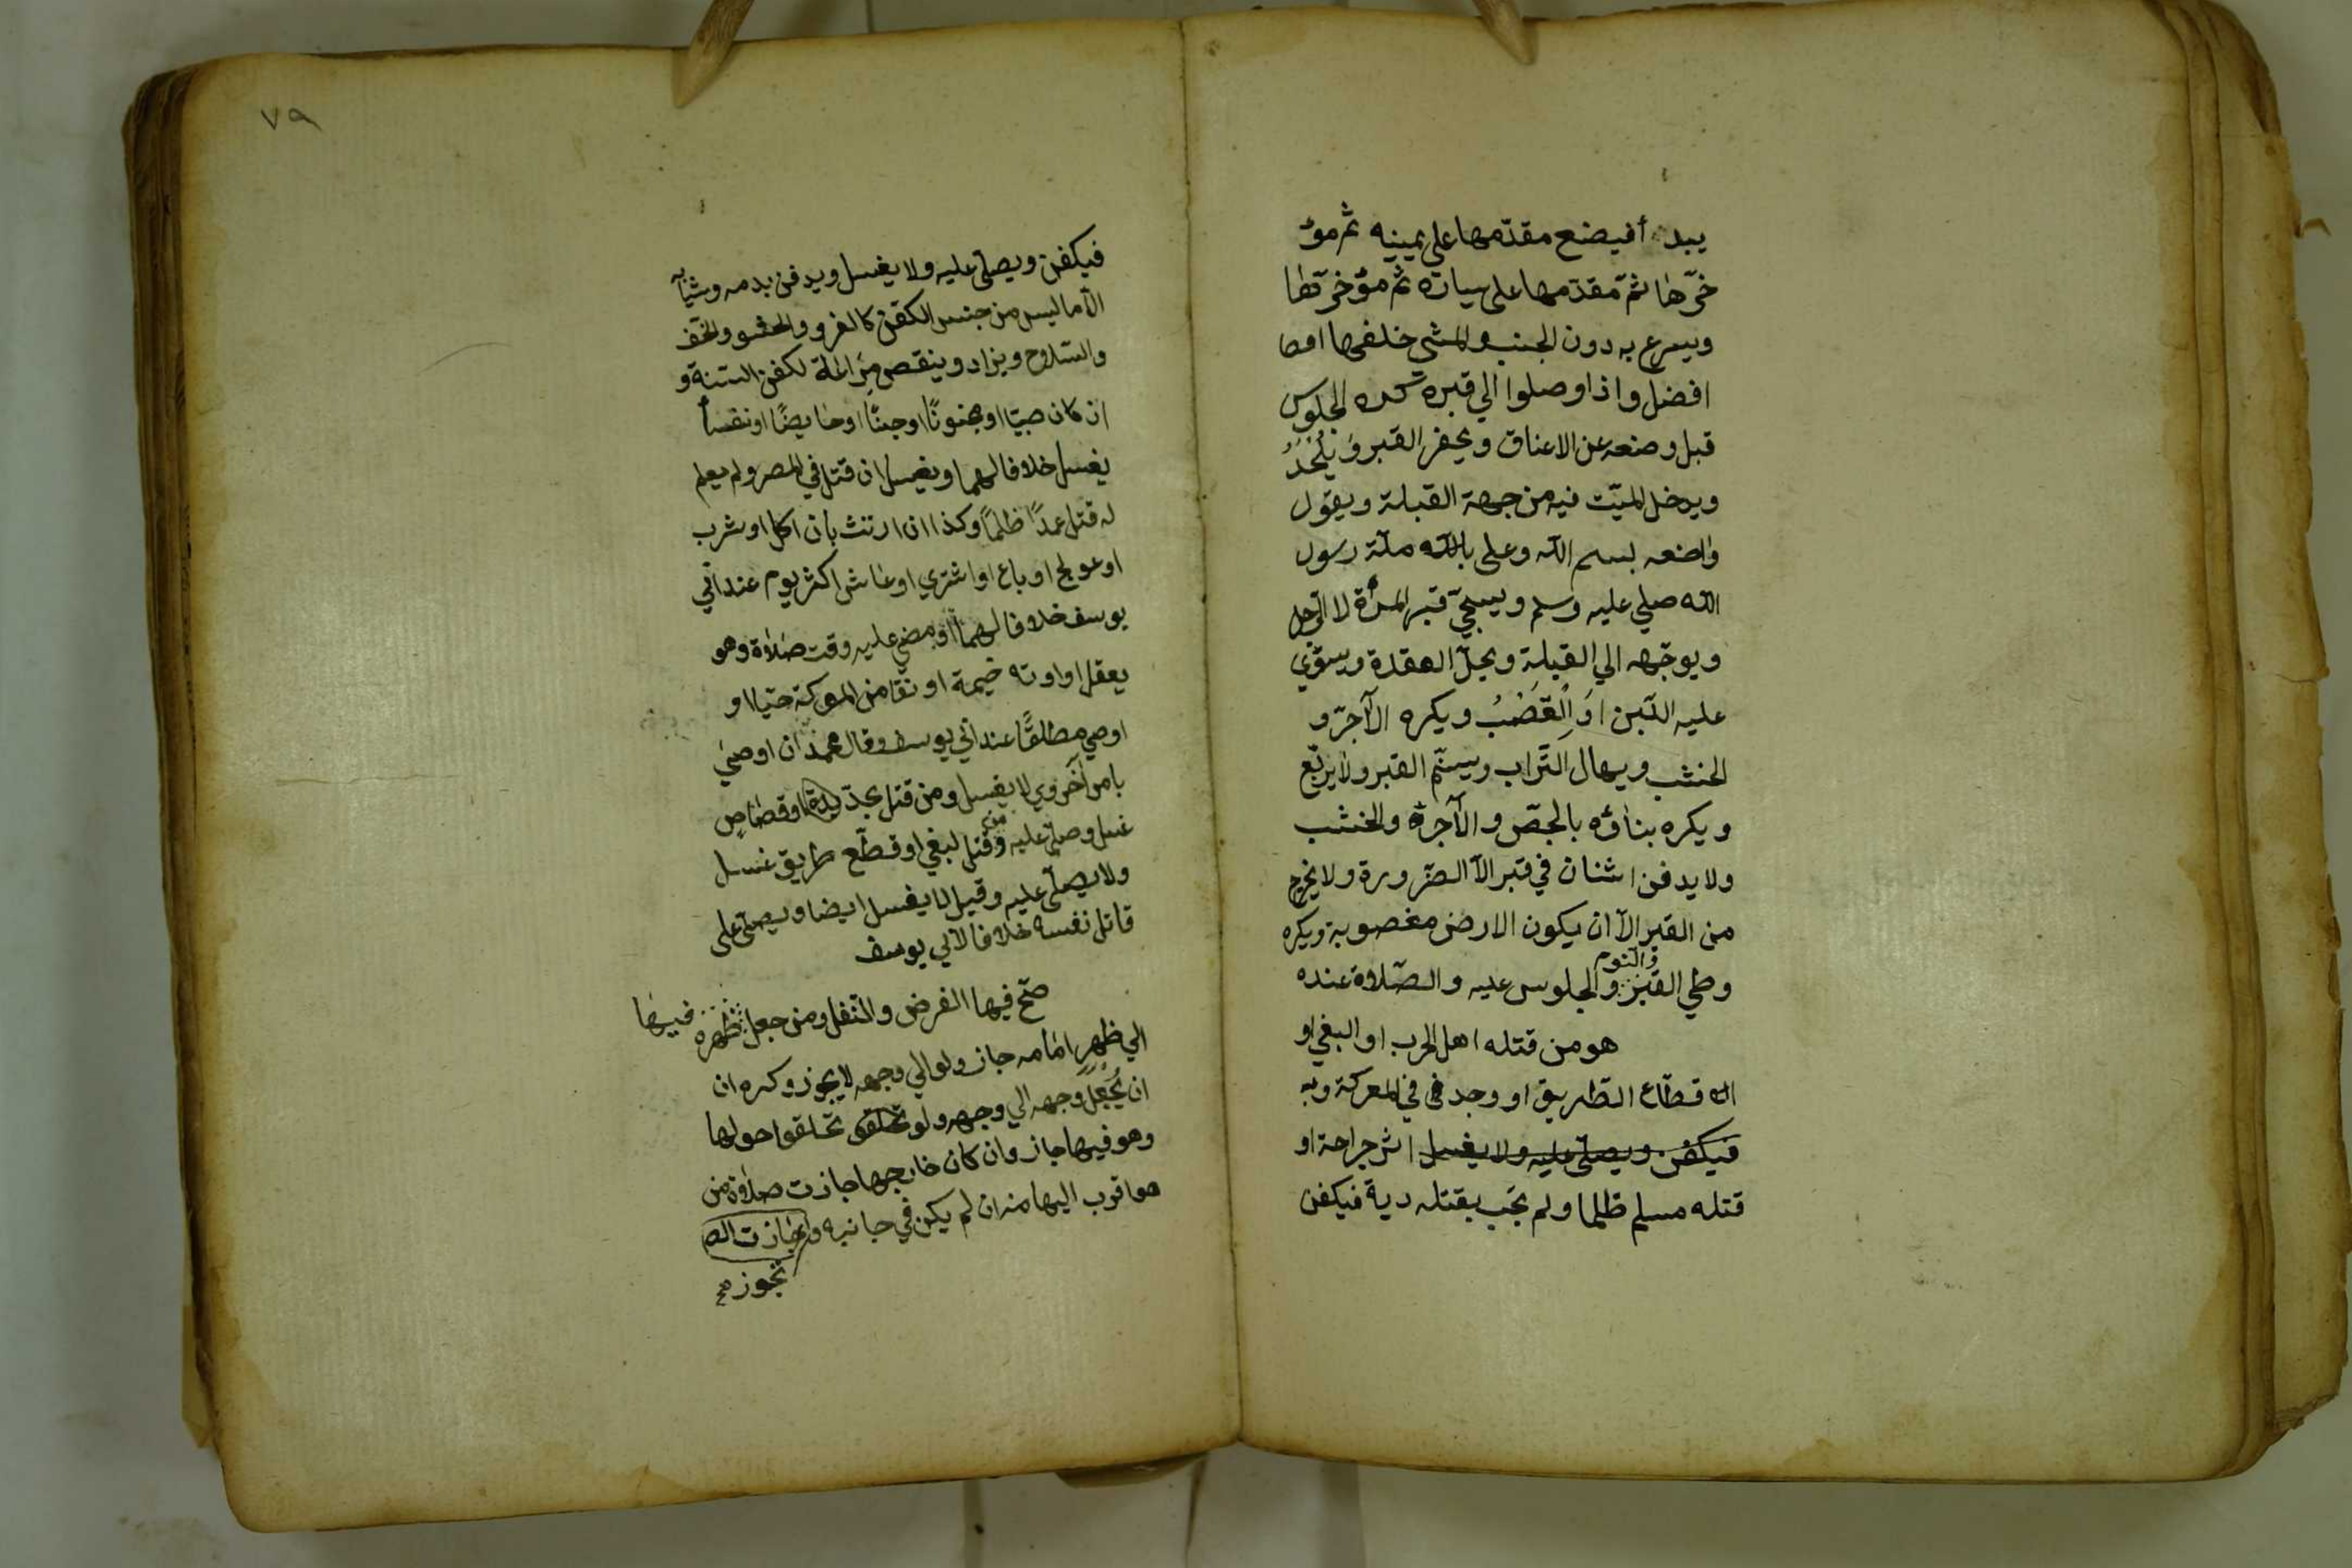 يبدء أفيضع مقدّمها على يمينه ثم مؤ
خرّها ثمّ مقدّمها على يساره ثم مؤخرّها
ويسرع به دون الجنب والمشي خلفها امها
افضل واذا وصلوا الي قبره كره الجلوس
قبل وضعه عن الاعناق ويحفر القبر ويُلْحَدُ
ويدخل الميّت فيه من جهة القبلة ويقول
واضعه بسم الله وعلى بالله ملّة رسول
الله صلي عليه وسلم ويسجّي قبر المرأة لا الرّجل
ويوجّهه الي القبلة ويحلّ العقدة ويسوّي
عليه اللّبن اَو القَصَبُ ويكره الآجرّ و
الخشب ويهال التّراب ويسنّم القبر ولا يربّع
ويكره بناؤه بالجصّ والآجرة والخشب
ولا يدفن اثنان في قبر الاّ الضّرورة ولا يخرج
من القبر الاّ ان يكون الارض مغصوبة ويكره
وطي القبر والنوم والجلوس عليه والصّلاوة عنده
هو من قتله اهل الحرب او البغي او
قطّاع الطّريق او وجد في المعركة وبه
فيكفن ويصلّى عليه ولا يغسل اثر جراحة او
قتله مسلم ظلما ولم يجب بقتله دية فيكفن
٧٩
فيكفن ويصلّى عليه ولا يغسل ويدفن بدمه وثيابه
الاّ ما ليس من جنس الكفن كالفرو والحشو والخفّ
والسّلاح ويزاد وينقص مراعاة لكفن السّنة و
ان كان صبيّا او مجنونًا او جنبًا او حايضًا او نفسأ
يغسل خلافا لهما ويغسل ان قتل في المصر ولم يعلم
له قتل عمدًا ظلمًا وكذا ان ارتث بان اكل او شرب
او عولج او باع او اشتري او عاش اكثر يوم عند ابي
يوسف خلافا لهما او مضي عليه وقت صلاة وهو
يعقل او اوته خيمة او نقا من المعركة حيّا او
اوصي مطلقًا عند ابي يوسف وقال محمد ان اوصي
بامر آخروي لا يغسل ومن قتل بحدّ او قصاص
غسل وصلّي عليه ومن قتل لبغي او قطّع طريق غسل
ولا يصلّى عليه وقيل لا يغسل ايضا ويصلّى على
قاتل نفسه خلافا لابي يوسف
صحّ فيها الفرض والنّفل ومن جعل ظهره فيها
الي ظهر امامه جاز ولو الي وجهه لا يجوز وكره ان
ان يُجعل وجهه الي وجهه ولو تحلقو تحلقوا حولها
وهو فيها جاز وان كان خارجها جازت صلاة من
هو اقرب اليها منه ان لم يكن في جانبه و جازت الص
تجوز صح